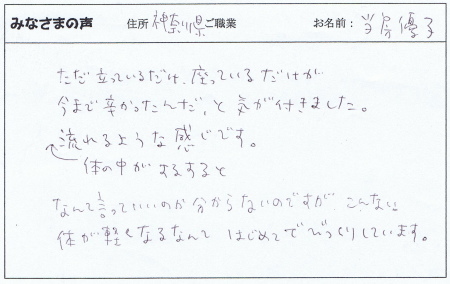 みなさまの声 住所 神奈川県 ご職業 お名前: 当房優子
ただ立っているだけ、座っているだけが
今まで辛かったんだ、と気が付きました。
流れるような感じです。
体の中がするすると
なんて言っていいのか分からないのですが、こんなに
体が軽くなるなんて はじめてでびっくりしています。